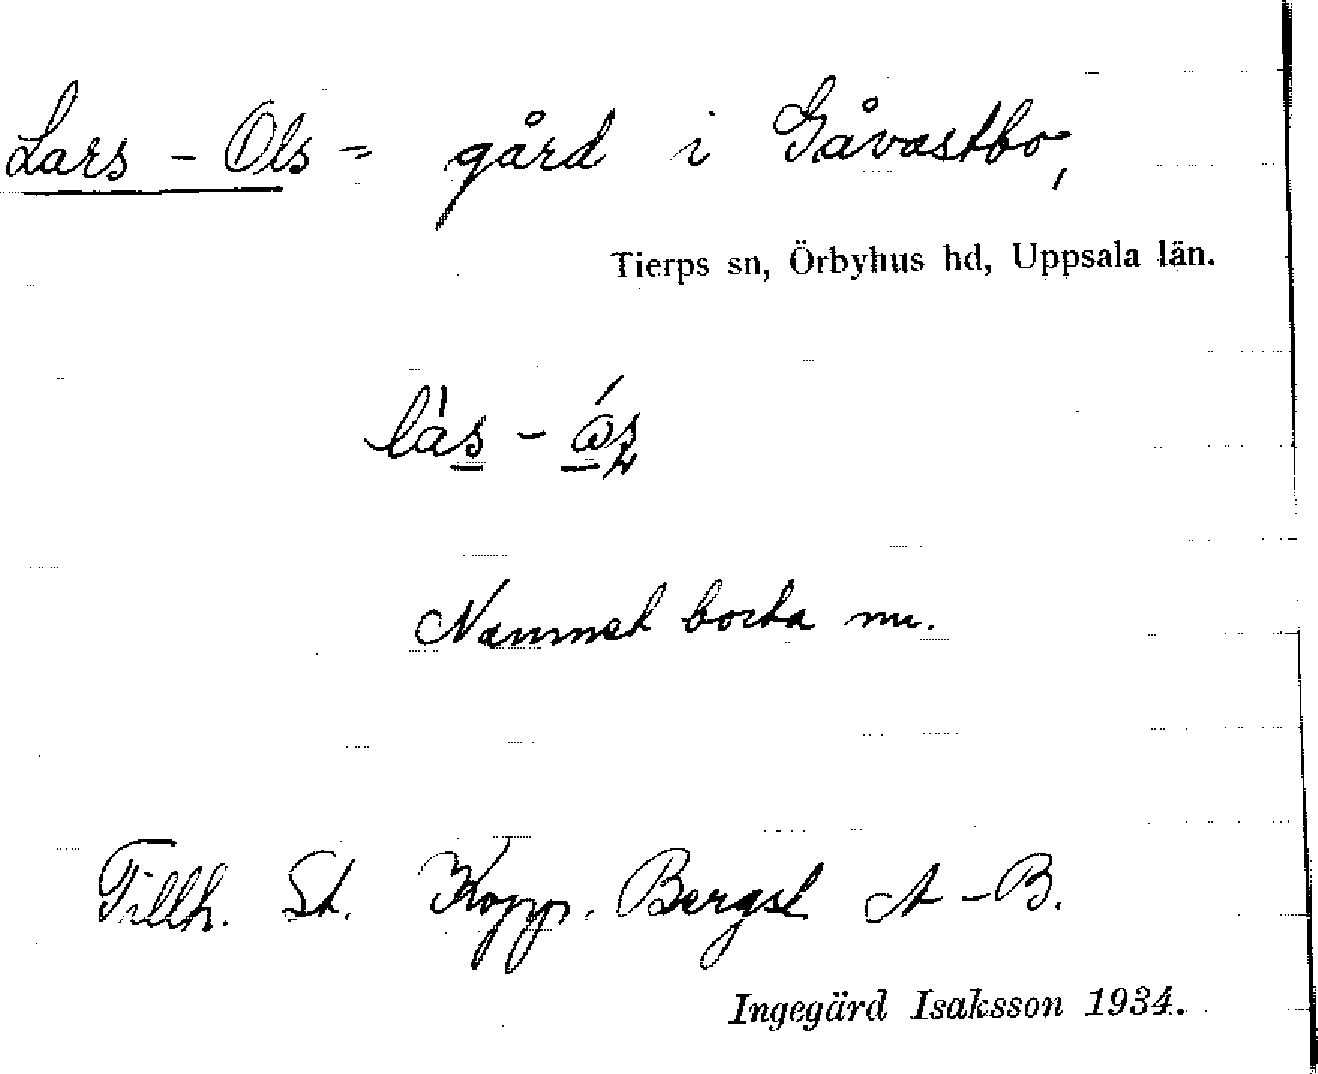 Lars - Ols = gård i Gåvastbo,
Tierps sn, Örbyhus hd, Uppsala län.
Namnet borta nu.
Tillh. St. Kopp. Bergsl A-B.
Ingegärd Isaksson 1934.